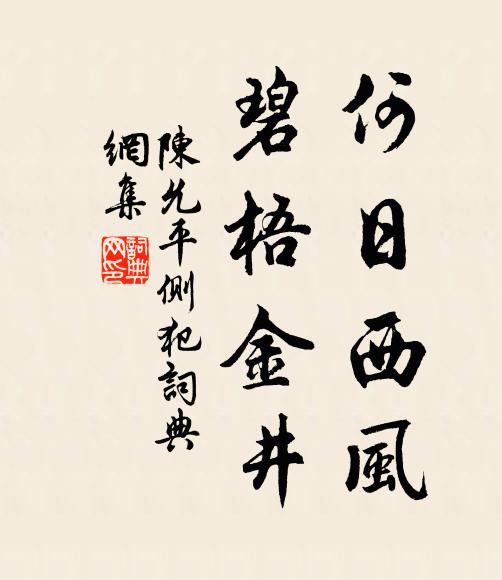 何日西風
碧梧金井
陳允平側犯詞典
網集
詞典网印